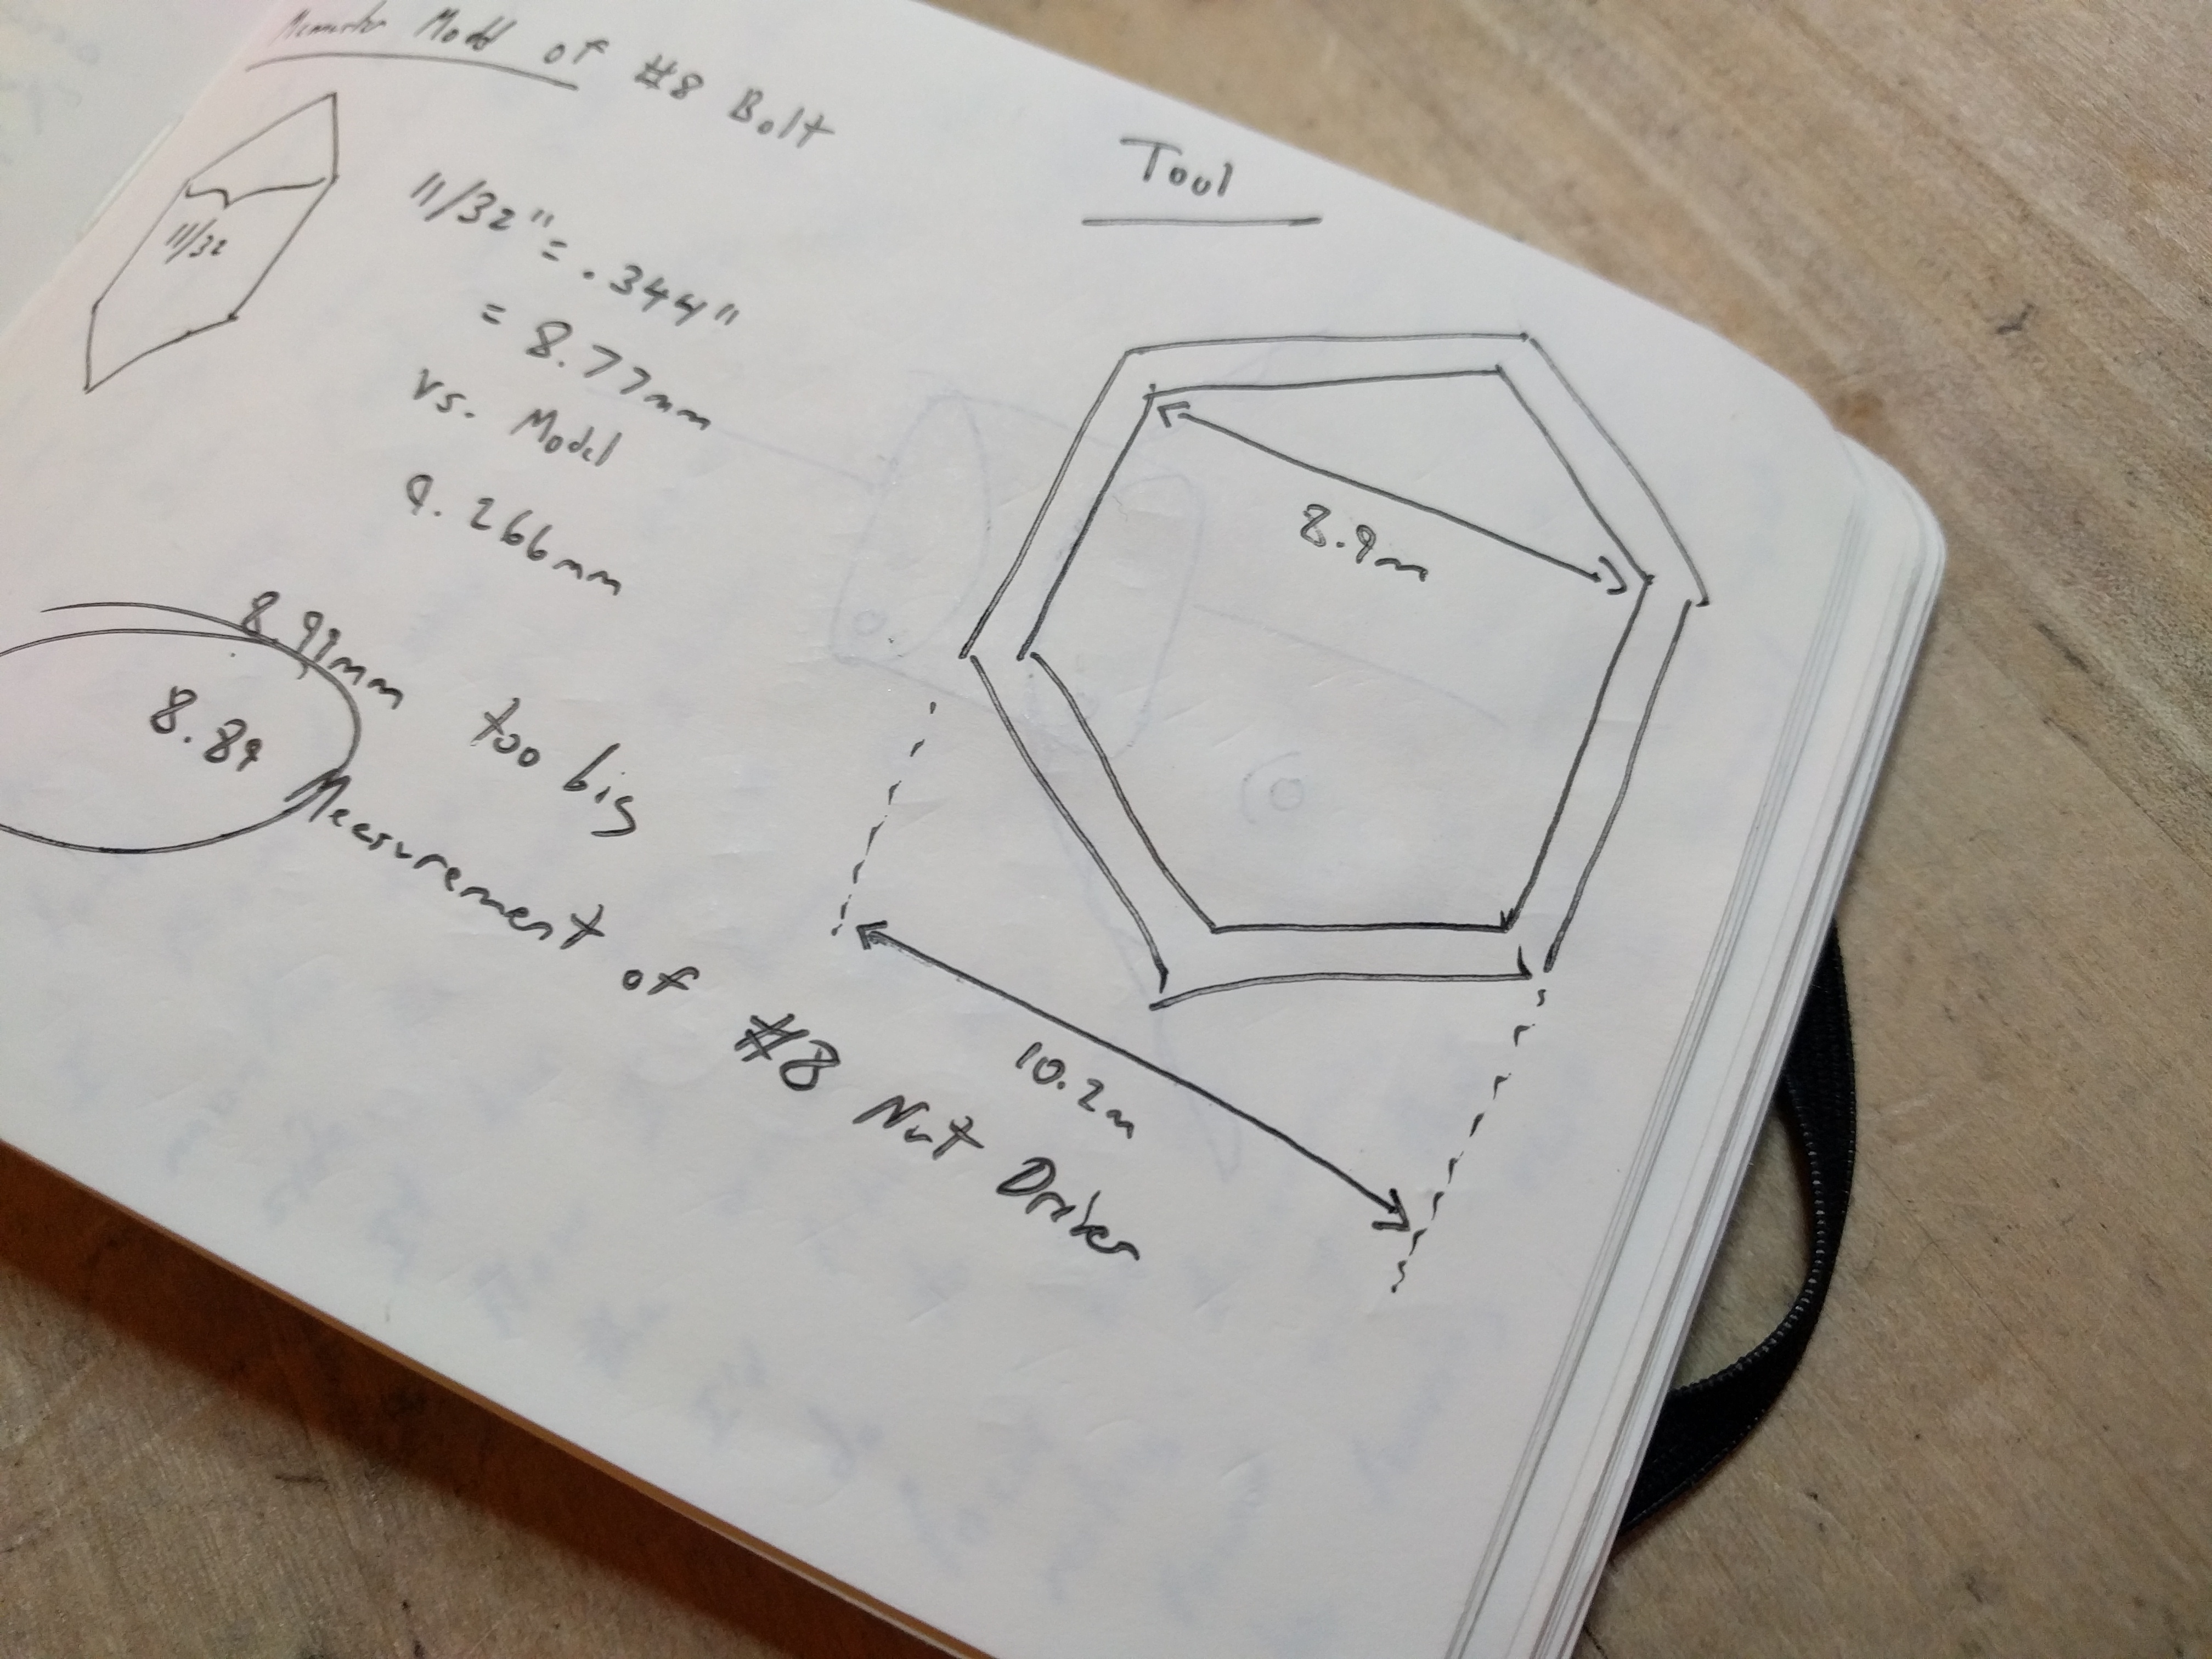 Model of #8 Bolt
11/32
11/32" = .344"
= 8.77mm
vs. Model
9.266mm
8.99mm too big
8.89
Measurement of #8 Nut Driver
Tool
8.9m
10.2m